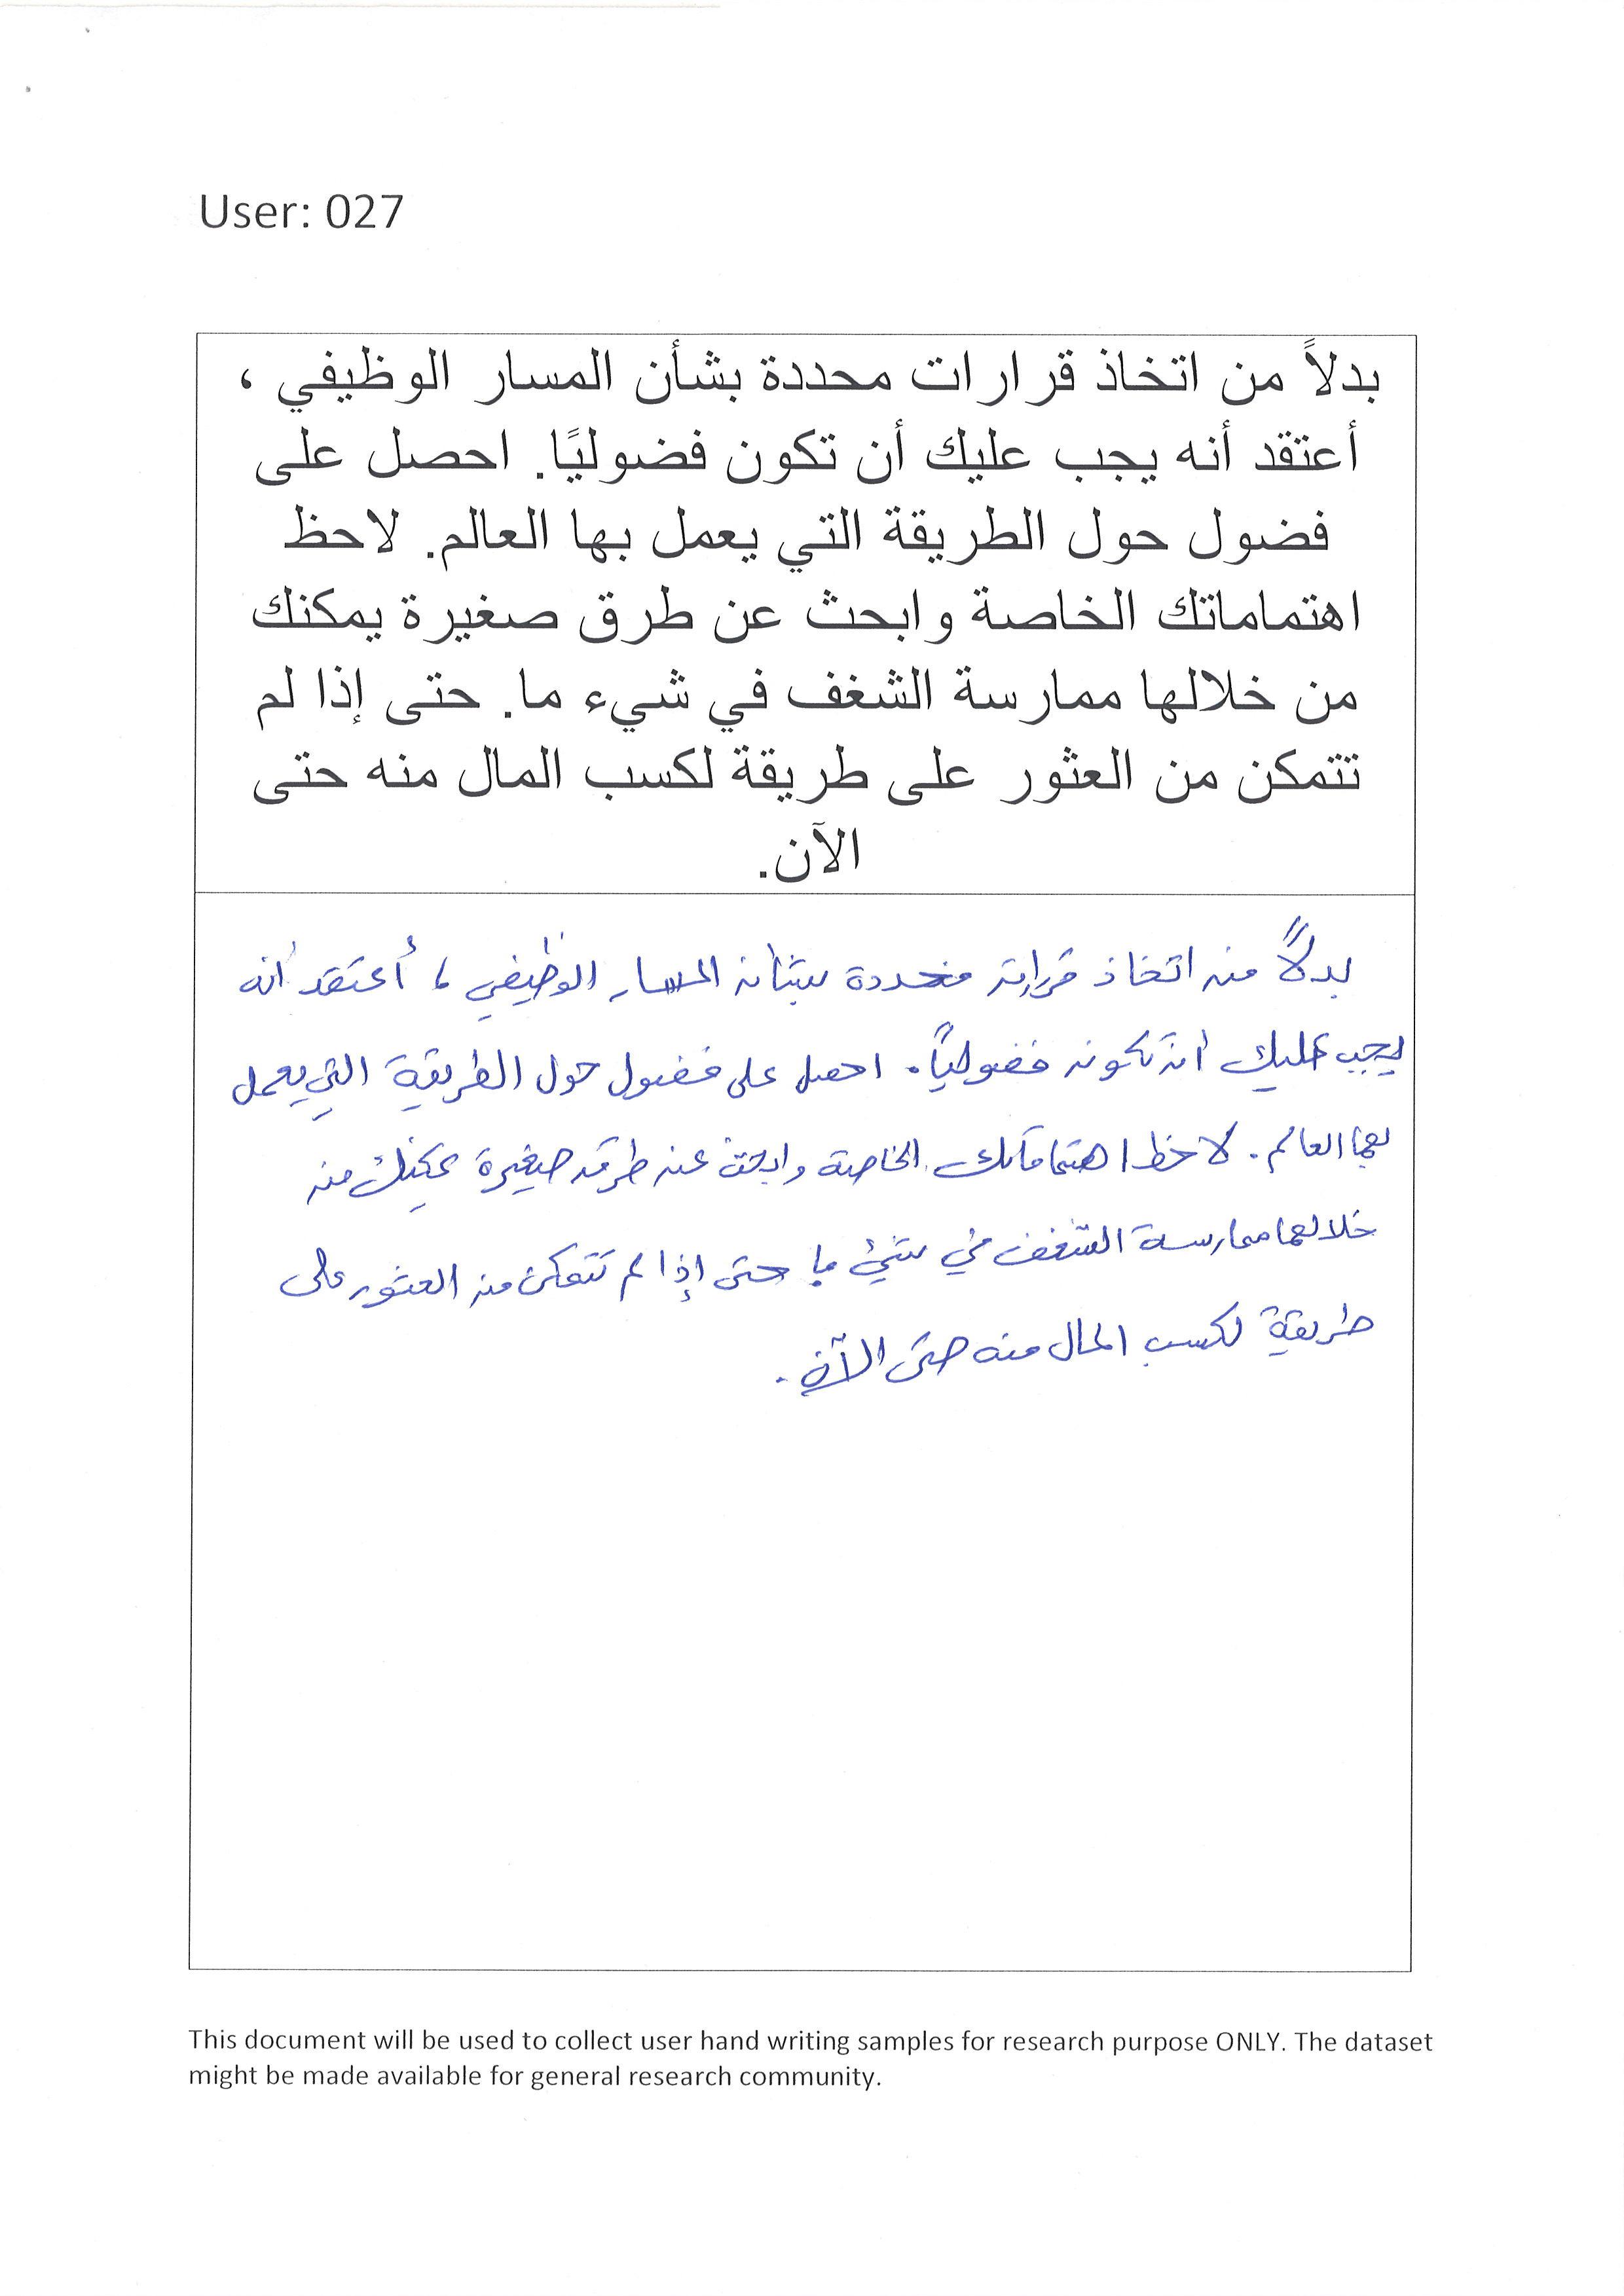 User: 027
بدلاً من اتخاذ قرارات محددة بشأن المسار الوظيفي ،
أعتقد أنه يجب عليك أن تكون فضوليًا. احصل على
فضول حول الطريقة التي يعمل بها العالم. لاحظ
اهتماماتك الخاصة وابحث عن طرق صغيرة يمكنك
من خلالها ممارسة الشغف في شيء ما. حتى إذا لم
تتمكن من العثور على طريقة لكسب المال منه حتى
الآن.
بدلاً من اتخاذ قرارات محددة بشأن المسار الوظيفي ، أعتقد أنه
يجب عليك أن تكون فضولياً. احصل على فضول حول الطريقة التي يعمل
بها العالم. لاحظ اهتماماتك الخاصة وابحث عن طرق صغيرة يمكنك من
خلالها ممارسة الشغف في شيئ ما حتى إذا لم تتمكن من العثور على
طريقة لكسب المال منه حتى الآن.
This document will be used to collect user hand writing samples for research purpose ONLY. The dataset
might be made available for general research community.